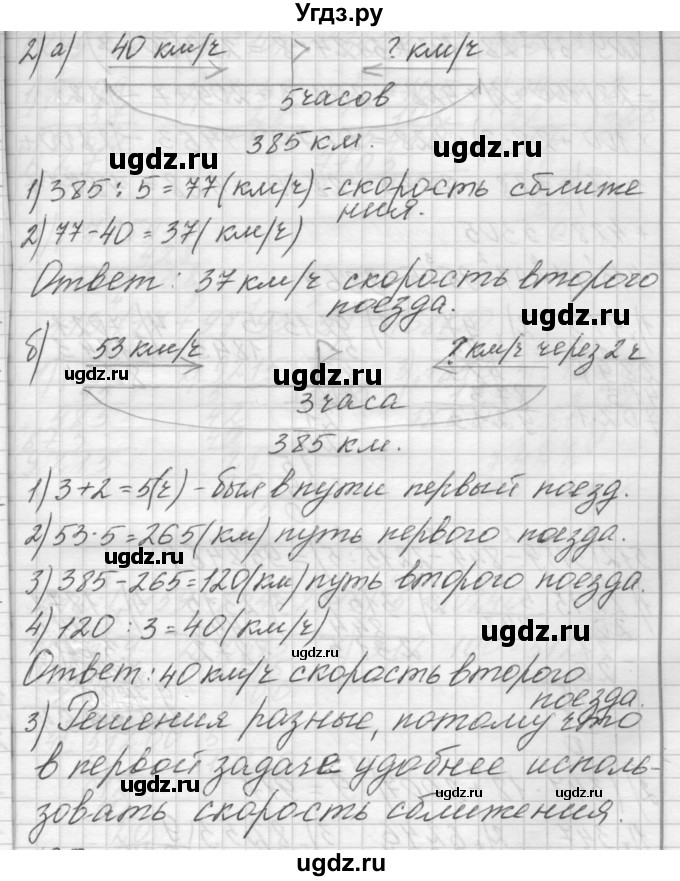 Угдз.ру
2) а) 40 км/ч ? км/ч
5 часов
385 км.
ugdz.ru ugdz.ru
1) 385 : 5 = 77 (км/ч) - скорость сближе
ния.
2) 77 - 40 = 37 (км/ч)
Ответ: 37 км/ч скорость второго
поезда.
ugdz.ru
б) 53 км/ч ? км/ч через 2 ч
ugdz.ru ugdz.ru ugdz.ru
3 часа
385 км.
1) 3 + 2 = 5 (ч) - был в пути первый поезд.
2) 53 · 5 = 265 (км) путь первого поезда.
ugdz.ru
3) 385 - 265 = 120 (км) путь второго поезда.
4) 120 : 3 = 40 (км/ч)
ugdz.ru ugdz.ru
Ответ: 40 км/ч скорость второго
поезда.
3) Решения разные, потому что
в первой задаче удобнее исполь-
ugdz.ru ugdz.ru
зовать скорость сближения.
ugdz.ru